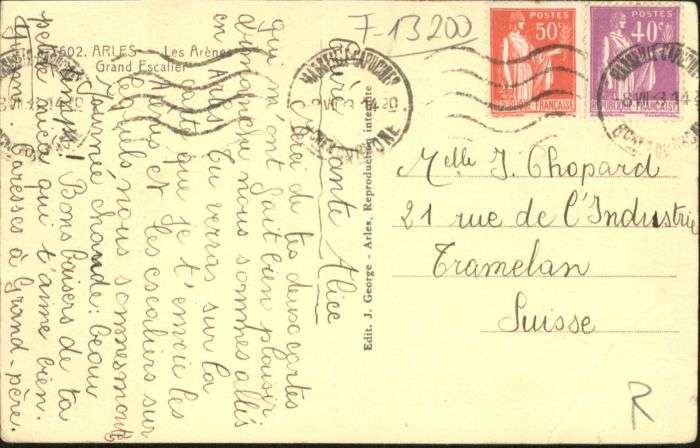 3602. ARLES - Les Arènes
Grand Escalier
F-13200
POSTES
50c
RÉPUBLIQUE FRANÇAISE
POSTES
40c
RÉPUBLIQUE FRANÇAISE
MARSEILLE-CAPUCINES
Chère tante Alice
Merci de tes deux cartes
qui m'ont fait bien plaisir
dimanche nous sommes allés
en Arles. Tu verras sur la
carte que je t'envoie les
Arènes et les escaliers sur
lesquels nous sommes montés
Journée chaude: beau
temps! Bons baisers de ta
petite nica qui t'aime bien.
Caresses à Grand-père.
Edit. J. George - Arles, Reproduction interdite
Melle J. Chopard
21 rue de l'Industrie
Tramelan
Suisse
R